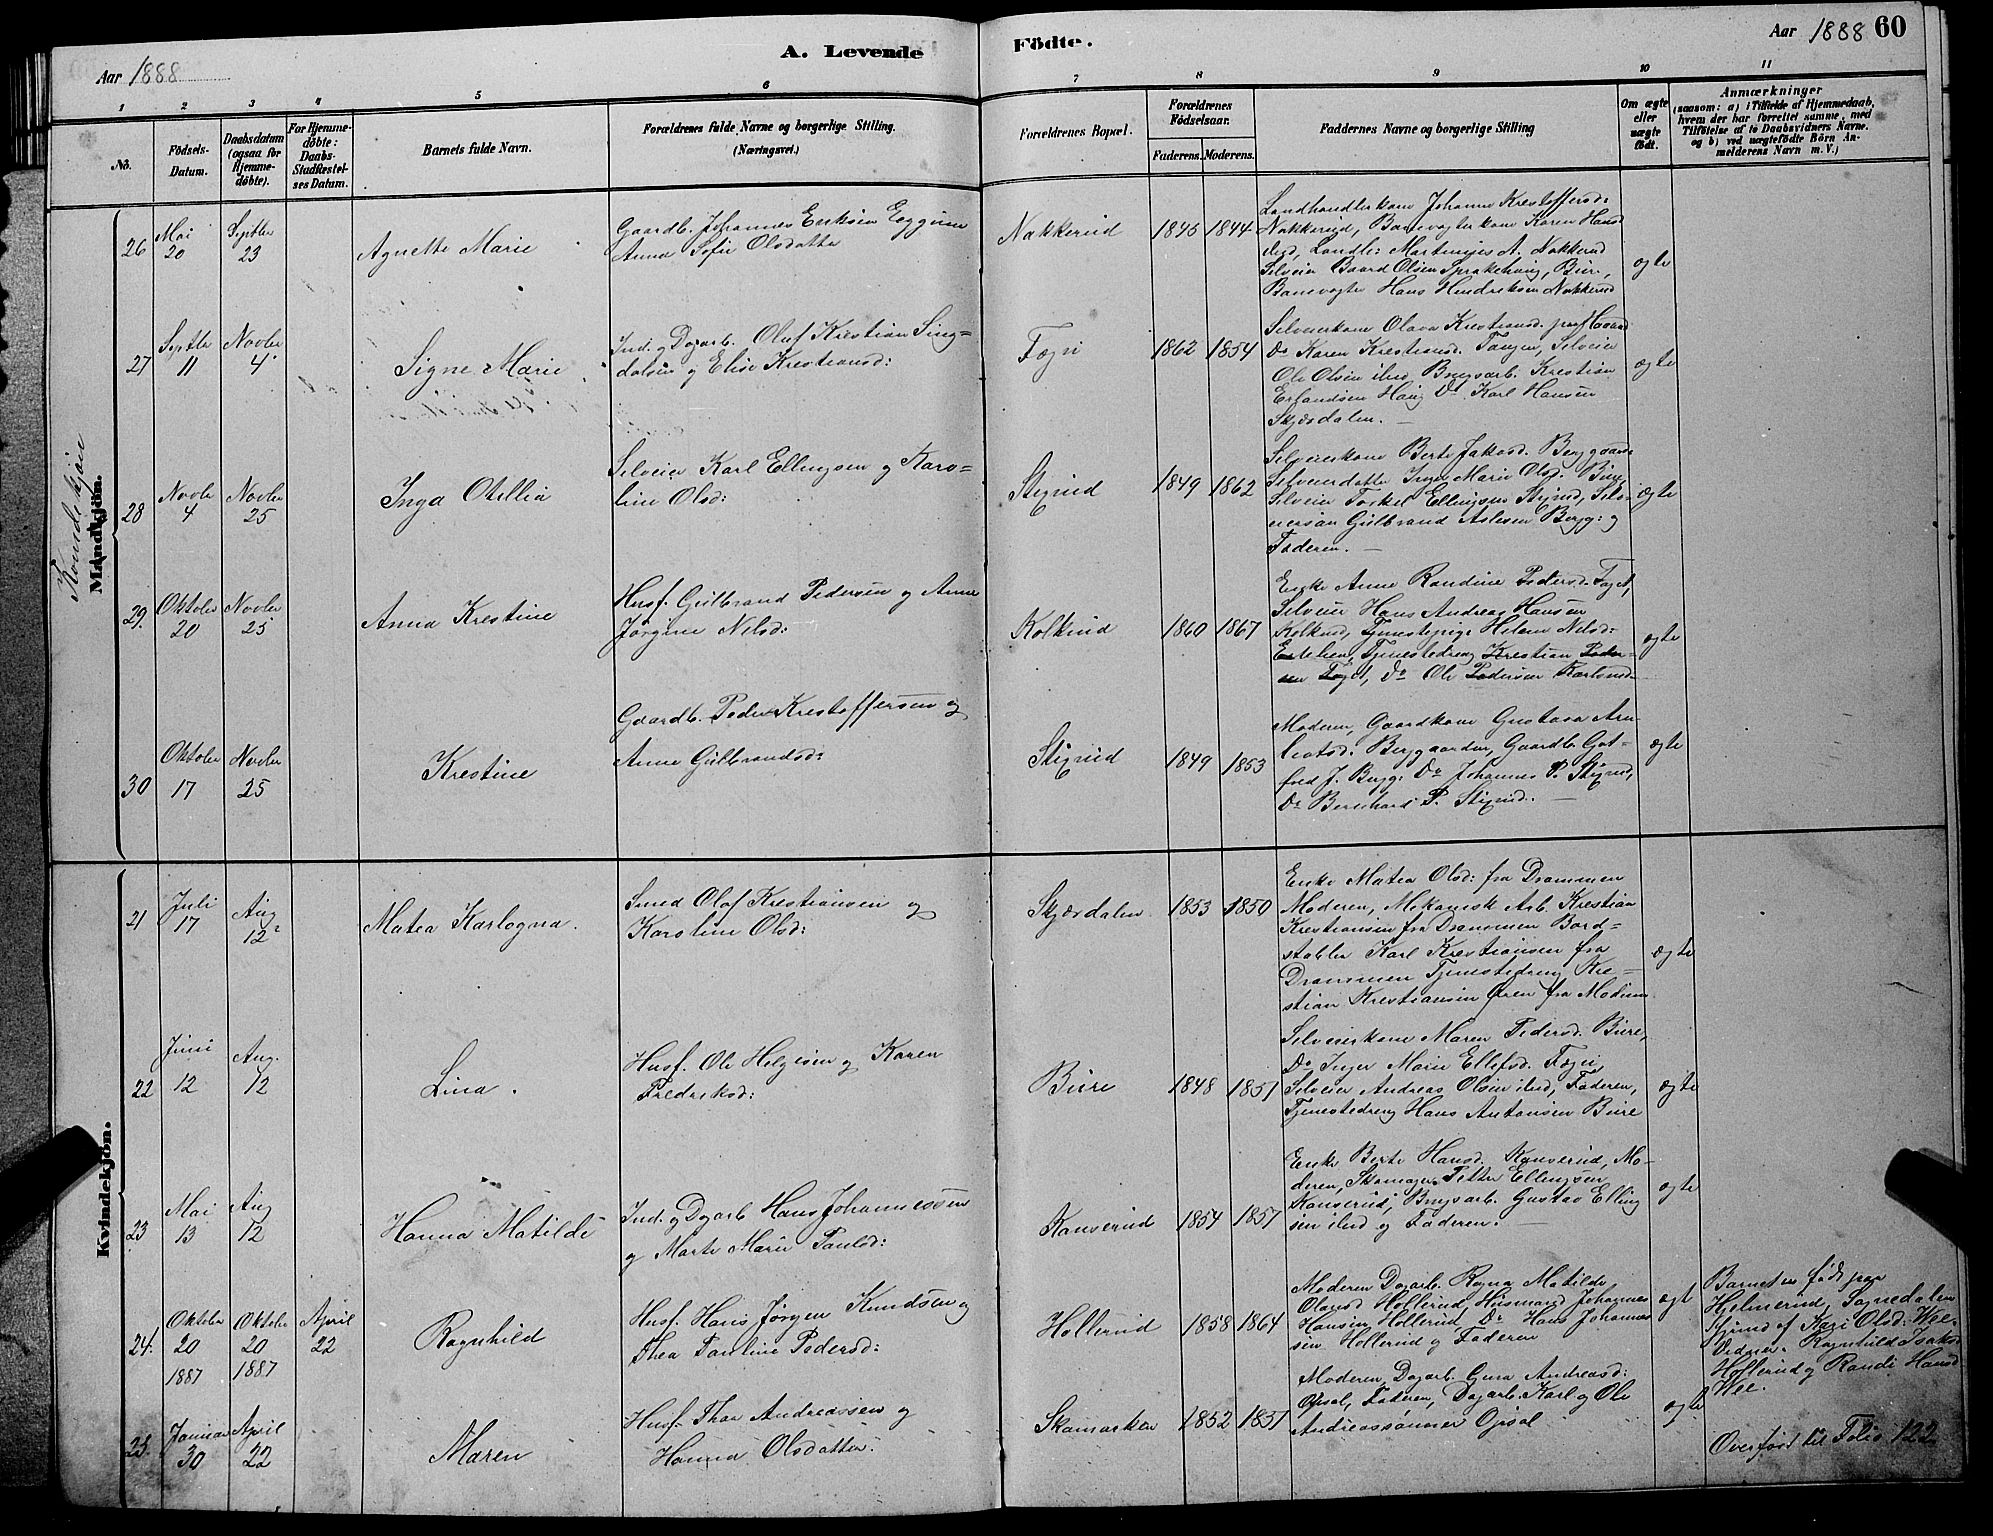 Aar 1888
A. Levende
Födte.
Aar 1888 60
1 2 3 4 5 6 7 8 9 10 11
No.
Födsels-
Datum.
Daabsdatum
(ogsaa for
Hjemme-
döbte).
For Hjemme-
döbte:
Daabs-
Stadfæstel-
ses Datum.
Barnets fulde Navn.
Forældrenes fulde Navne og borgerlige Stilling.
(Næringsvei.)
Forældrenes Bopæl.
Forældrenes
Födselsaar.
Faderens. Moderens.
Faddernes Navne og borgerlige Stilling
Om ægte
eller
uægte
födt.
Anmærkninger
(saasom: a) i Tilfælde af Hjemmedaab,
hvem der har forrettet samme, med
Tilföielse af to Daabsvidners Navne.
og b) ved uægtefödte Börn An-
melderens Navn m. V.)
Kvindekjön
Mandkjön.
26
Mai
20
Septbr
23
Agnethe Marie
Gaardb. Johannes Eriksen Eggum
Anna Sofie Olsdatter
Nakkerud
1845 1844
Landhandlerkone Johanne Krestoffersd:
Nakkerud, Banevogterkone Karen Hans
dtrd, Landh: Martinius A. Nakkerud
Selveier Baard Olsen Sprakehaug, Bure,
Banevogter Hans Hendriksen Nakkerud
ægte
27
Septbr
11
Novbr
4
Signe Marie
Ind. og Dagarb. Oluf Krestian Sing-
dalsen og Elise Krestiansd:
Fægri
1862 1854
Selveierkone Olava Krestiansd.
Do Karen Krestiansd. Tangen, Selveier
Ole Olsen ibid, Brugsarb. Krestian
Erlandsen Haug Do Karl Hansen
Skjærdalen.
ægte
28
Novbr
4
Novbr
25
Inga Otillia
Selveier Karl Ellingsen og Karo-
line Olsd:
Stixrud
1849 1862
Selveierkone Berte Jakobsd. Berggaarden
Selveierdatter Inger Marie Olsd. Bure,
Selveier Torkel Ellingsen Stixrud, Selv-
eiersøn Gulbrand Aslesen Bergg: og
Faderen.
ægte
29.
Oktober
20
Novbr
25
Anna Krestine
Husf. Gulbrand Pedersen og Anne
Jørgine Nilsd:
Kolkind
1860 1867
Enke Anne Randine Pedersd. Foget,
Selveier Hans Andreas Hansen
Kolkind, Tjenestepige Helene Nilsd:
Tjenestedreng Krestian Peder-
sen Foget, Do Ole Pedersen
ægte
30
Oktober
17
Novbr
25
Krestine
Gaardb. Peder Krestoffersen og
Anne Gulbrandsd:
Stixrud
1849 1853
Moderen, Gaardkone Gustava Arn-
Berggaarden, Gaardb. Got-
fred J. Bergg: Do Johannes P. Stixrud,
Do Bernhard P. Stixrud.
ægte
Kvindekjön.
21
Juli
17
Aug
12
Matea Karlogna.
Smed Olaf Krestiansen og
Karoline Olsd:
Skjærdalen
1853 1850
Enke Matea Olsd: fra Drammen
Moderen, Mekanisk Arb. Krestian
Krestiansen fra Drammen Bord-
stabler Karl Krestiansen fra
Drammen Tjenestedreng Kre-
stian Krestiansen Øren fra Modum
ægte
22
Juni
12
Aug.
12
Lina.
Husf. Ole Helgesen og Karen
Fredriksd:
Bure
1848 1851
Selveierkone Maren Pedersd. Bure,
Do Inger Marie Ellefsd. Fægri,
Selveier Andreas Olsen ibid, Faderen,
Tjenestedreng Hans Antonsen Bure
ægte
23
Mai
13
Aug
12
Hanna Matilde
Ind. og Dagarb Hans Johannessen
og Marte Marie Paulsd:
Kanserud
1854 1857
Enke Berte Hansd. Kanserud, Mo-
deren, Skomager Petter Ellingsen
Kanserud, Brugsarb. Gustav Elling
sen ibid og Faderen.
ægte
24.
Oktober
20
1887
Oktober
20
1887
April
22
Ragnhild
Husf. Hans Jørgen Knudsen og
Thea Pauline Pedersd:
Hollerud
1858 1864
Moderen Dagarb. Ragna Matilde
Olausd Hollerud, Husmand Johannes
Hansen Hollerud, Do Hans Johannes
sen Hollerud og Faderen
ægt
Barnet er født paa
Hjelmerud, Sognedalen
Kari Olsd: Wee
Ragnhild Isaksd
Hollerud og Randi Hansd
Wee.
25.
Januar
30
April
22
Maren
Husf. Thor Andreassen og
Hanna Olsdatter.
Skamarken
1852 1851
Moderen, Dagarb. Guro Andreasd:
Opsal, Faderen, Dagarb. Karl og Ole
Andreassønner Opsal
ægte
Overført til Folio 122